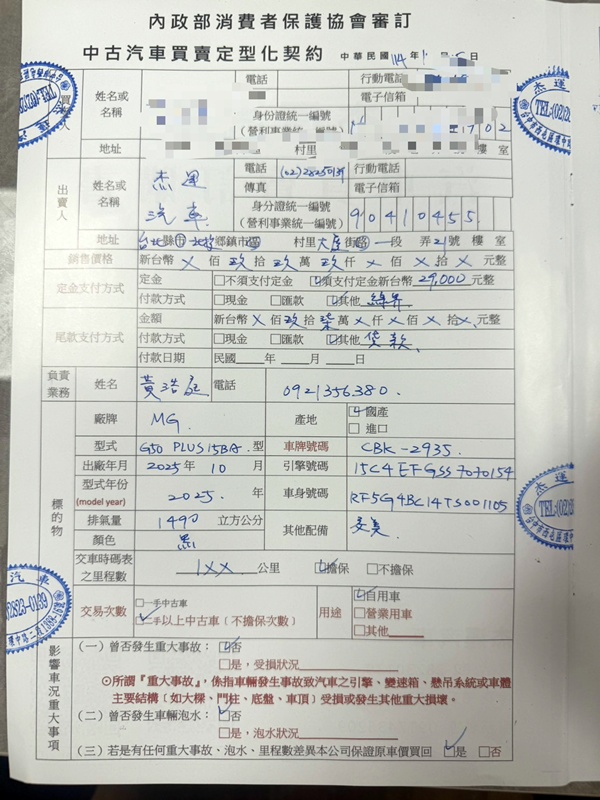 內政部消費者保護協會審訂
中古汽車買賣定型化契約 中華民國114年 日
姓名或名稱 電話 行動電話
電子信箱
身份證統一編號
(營利事業統一編號) 1702
地址 村里 樓 室
出賣人 姓名或名稱 杰運汽車 電話 (02)28250139 行動電話
傳真 電子信箱
身分證統一編號
(營利事業統一編號) 90410455
地址 台北縣市 北投鄉鎮市區 村里 大度街路 一段 弄21號 樓 室
銷售價格 新台幣 X 佰 玖 拾 玖 萬 玖 仟 X 佰 X 拾 X 元整
定金支付方式 定金 □不須支付定金 ☑須支付定金新台幣 29,000 元整
付款方式 □現金 □匯款 ☑其他
尾款支付方式 金額 新台幣 X 佰 玖 拾 柒 萬 X 仟 X 佰 X 拾 X 元整
付款方式 □現金 □匯款 ☑其他 貸款
付款日期 民國 年 月 日
負責業務 姓名 黃浩庭 電話 0921356380
標的物 廠牌 MG 產地 ☑國產
□進口
型式 G50 PLUS 15BA 型 車牌號碼 CBK-2935
出廠年月 2025 年 10 月 引擎號碼 15C4EFGSS7070154
型式年份(model year) 2025 年 車身號碼 RF5G4BC14TS001105
排氣量 1490 立方公分 其他配備 委美
顏色 黑
交車時碼表之里程數 1XX 公里 ☑擔保 □不擔保
交易次數 □一手中古車
☑二手以上中古車〔不擔保次數〕
用途 ☑自用車
□營業用車
□其他
影響車況重大事項 (一)曾否發生重大事故:☑否
□是,受損狀況
⊙所謂『重大事故』,係指車輛發生事故致汽車之引擎、變速箱、懸吊系統或車體
主要結構〔如大樑、門柱、底盤、車頂〕受損或發生其他重大損壞。
(二)曾否發生車輛泡水:☑否
□是,泡水狀況
(三)若是有任何重大事故、泡水、里程數差異本公司保證原車價買回 ☑是 □否